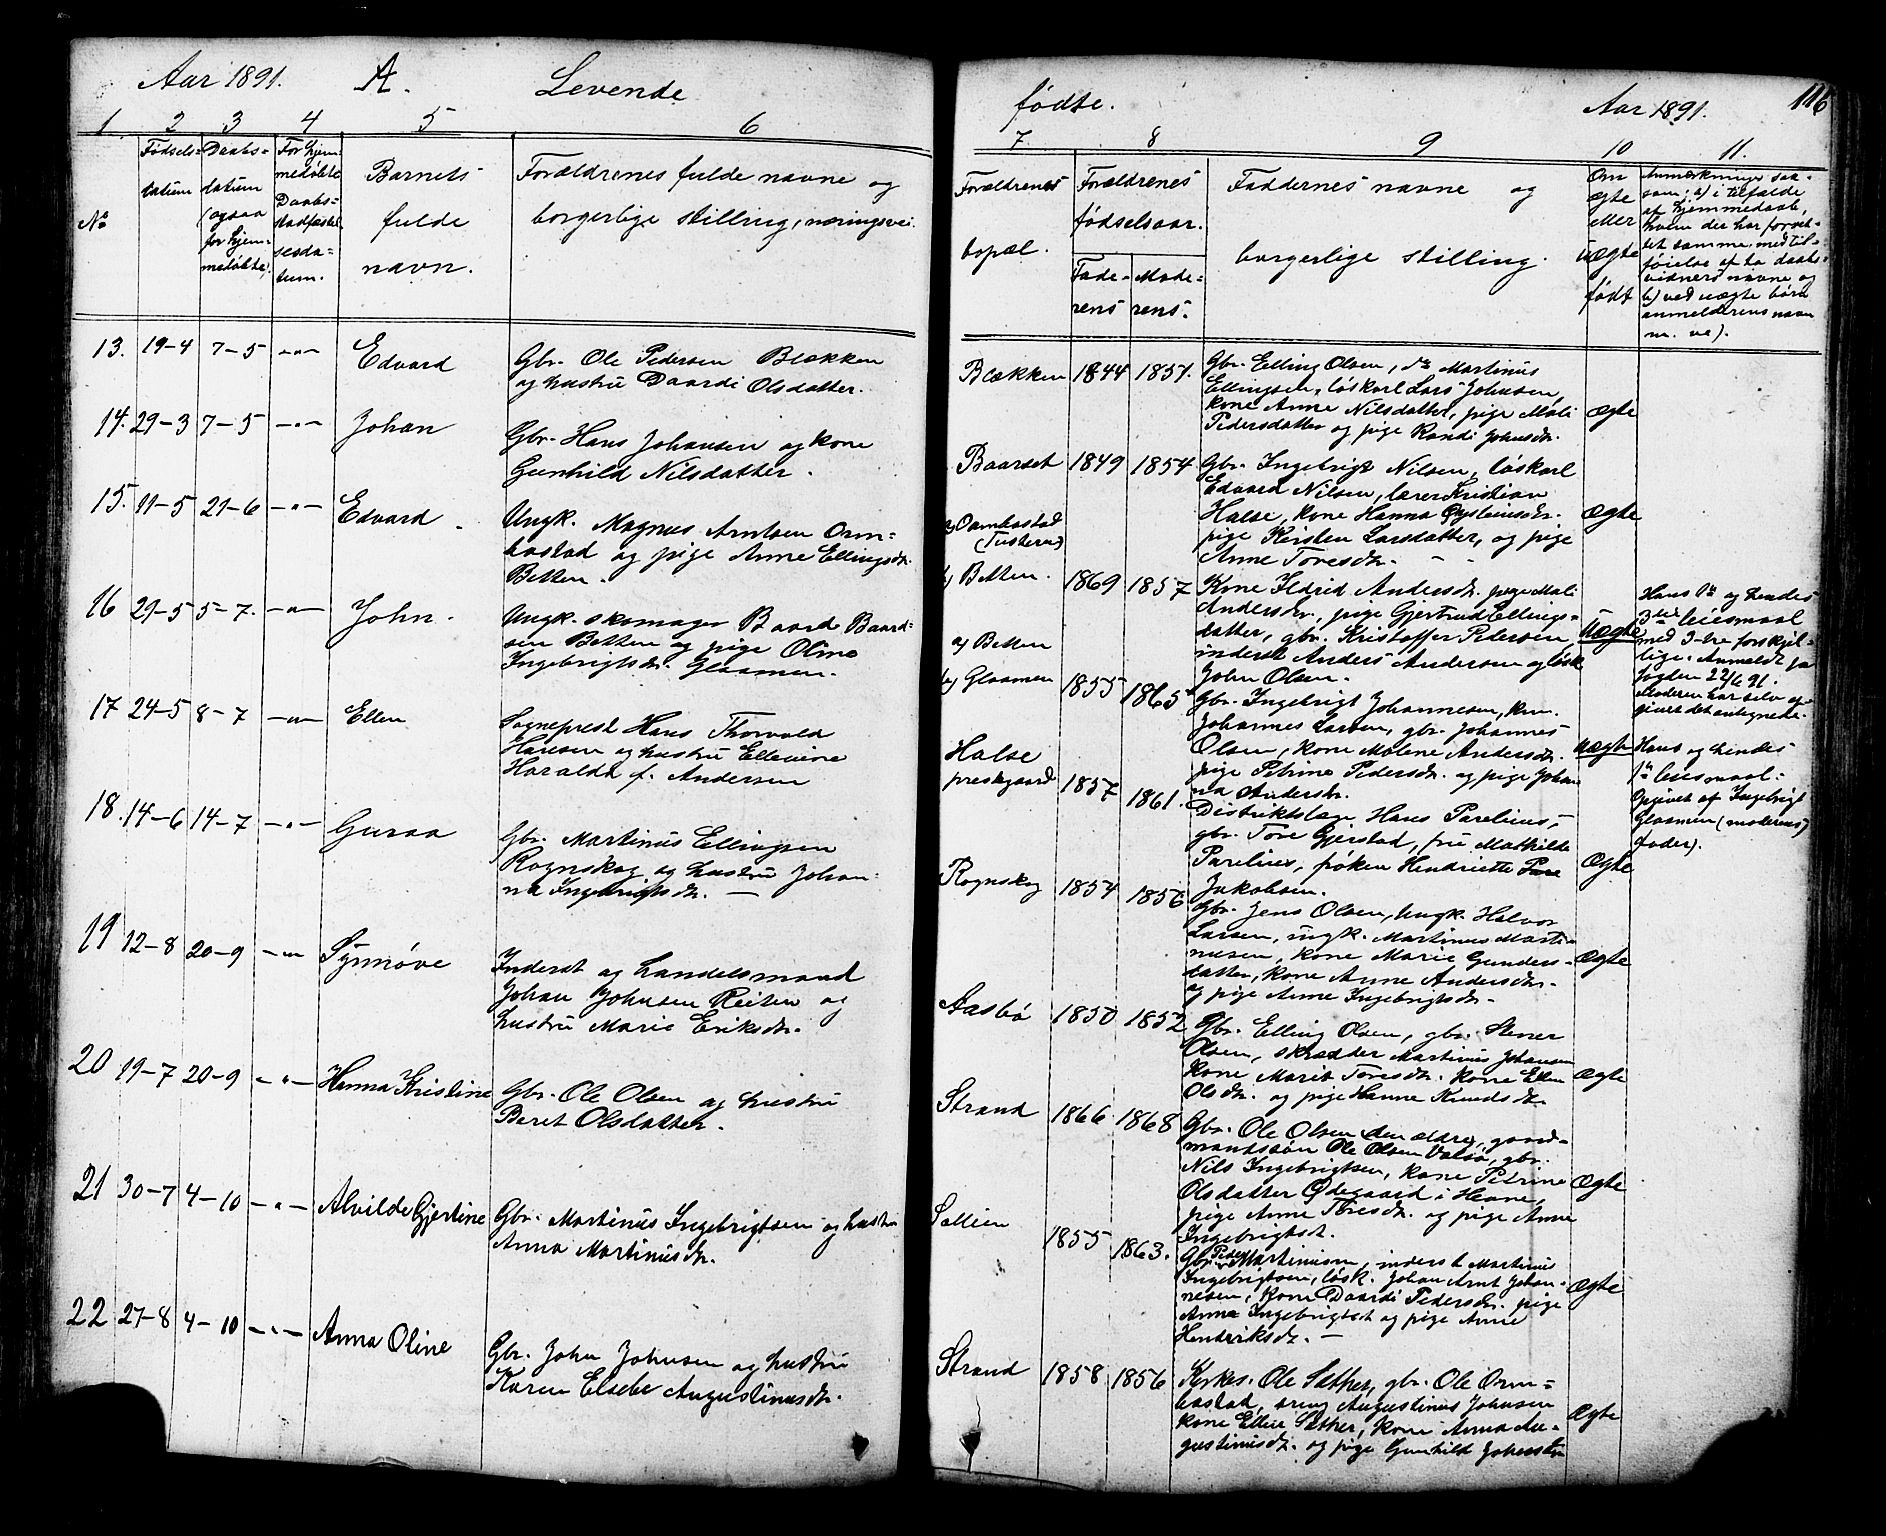 Aar 1891. A. Levende
1 2 3 4 5 6
No
Fødsels-
datum
Daabs-
datum
(ogsaa
for hjem-
medøbte).
For hjem-
medøbte
Daabs-
stadfæstel-
sesda-
tum.
Barnets
fulde
navn.
Forældrenes fulde navne og
borgerlige stilling, næringsvei.
13. 19-4 7-5 -"- Edvard
Gbr. Ole Pedersen Blækken
og hustru Daardi Olsdatter.
14. 29-3 7-5 -"- Johan
Gbr. Hans Johansen og kone
Gunhild Nilsdatter.
15. 11-5 21-6 -"- Edvard
Ungk. Magnus Arntsen Orm=
bostad og pige Anne Ellingsdr.
Betten.
16 29-5 5-7. -"- John.
Ungk. skomager Baard Baard=
sen Betten og pige Oline
Ingebrigtsdr. Glaamen.
17 24-5 8-7 -"- Ellen
Sogneprest Hans Thorvald
Hansen og hustru Ellevine
Haralda f. Andersen
18. 14-6 14-7 -"- Guraa
Gbr. Martinus Ellingsen
Rognskog og hustru Johan-
na Ingebrigtsdr.
19 12-8 20-9 -"- Synnøve
Inderst og handelsmand
Johan Johnsen Reiten og
hustru Marie Eriksdr.
20 19-7 20-9 -"- Hanna Kristine
Gbr. Ole Olsen og hustru
Beret Olsdatter.
21 30-7 4-10 -"- Alvilde Gjertine
Gbr. Martinus Ingebrigtsen og hustru
Anna Martinusdr.
22 27-8 4-10 -"- Anna Oline
Gbr. John Johnsen og hustru
Karen Elsebe Augustinusdr.
fødte. Aar 1891. 116
7 8 9 10 11.
Forældrenes
bopæl.
Forældrenes
fødselsaar.
Fade-
rens
Mode-
rens.
Faddernes navne og
borgerlige stilling.
Om
ægte
eller
uægte
født
Anmærkninger saa-
som: a) i tilfælde
af hjemmedaab,
hvem der har forret-
tet samme, med til-
føielse af to daabs-
vidners navne og
b) ved uægte børn
anmelderens navn
m. v.).
Blækken 1844 1857.
Gbr. Elling Olsen, do Martinus
Ellingsen, løskarl Lars Johnsen,
kone Anne Nilsdatter, pige Mali
Pedersdatter og pige Randi Johnsdr.
Ægte
Baarset 1849 1854
Gbr. Ingebrigt Nilsen, løskarl
Edvard Nilsen, lærer Kristian
Halse, kone Hanna Øysteinsdr.
pige Kirsten Larsdatter, og pige
Anne Toresdr.
Ægte
a) Ormbostad
(Tusteren)
b) Betten. 1869 1857
Kone Ildrid Andersdr. pige Mali
Andersdr., pige Gjertrud Ellings-
datter, gbr. Kristoffer Pedersen,
inderst Anders Andersen og løsk.
John Olsen.
Uægte
Hans 1ste og hendes
3die leiermaal
med 3-tre forskjel-
lige. Anmeldt for
fogden 22/6 91.
Moderen har selv op-
givet det antegnede.
a) Betten
b) Glaamen 1855 1865
Gbr. Ingebrigt Johannesen,
Johannes Larsen, gbr. Johannes
Olsen, kone Malene Andersdr.
pige Petrine Pedersdr. og pige Johan
na Andersdr.
Uægte
Hans og hendes
1ste leiermaal.
Opgivet af Ingebrigt
Glaamen (moderens)
fader).
Halse
prestgaard 1857 1861.
Distriktslæge Hans Parelius,
gbr. Tore Gjerstad, fru Mathilde
Parelius, frøken Henriette Pare
Jakobsen.
Ægte
Rognskog 1854 1856
Gbr. Jens Olsen, Ungk. Halvor
Larsen, ungk. Martinus Marti-
nusen, kone Marie Gunders-
datter, kone Anne Andersdr.
og pige Anne Ingebrigtsdr.
Ægte
Aasbø 1850 1852
Gbr. Elling Olsen, gbr. Stener
Olsen, skrædder Martinus Johansen
Kone Marit Toresdr. kone Ellen
Olsdr. og pige Hanne Knudsdr.
Ægte
Strand 1866 1868
Gbr. Ole Olsen den ældre, gaard-
mandssøn Ole Olsen Valsø, gbr.
Nils Ingebrigtsen, kone Petrine
Olsdatter Ødegaard i Hevne,
pige Anne Toresdr. og pige Anne
Ingebrigtsdt.
Ægte
Sollien 1855 1863.
Gbr. Peder Martinusen, inderst Martinus
Ingebrigtsen, løsk. Johan Arnt Johan-
nesen, kone Daardi Pedersdr. pige
Anna Ingebrigtsdt og pige Anne
Hendriksdr.
Ægte
Strand 1858 1856
Kirkes. Ole Sæther, gbr. Ole Orm=
bostad, dreng Augustinus Johnsen
kone Ellen Sæther, kone Anna Au-
gustinusdr. og pige Gunhild Johnsdtr
Ægte